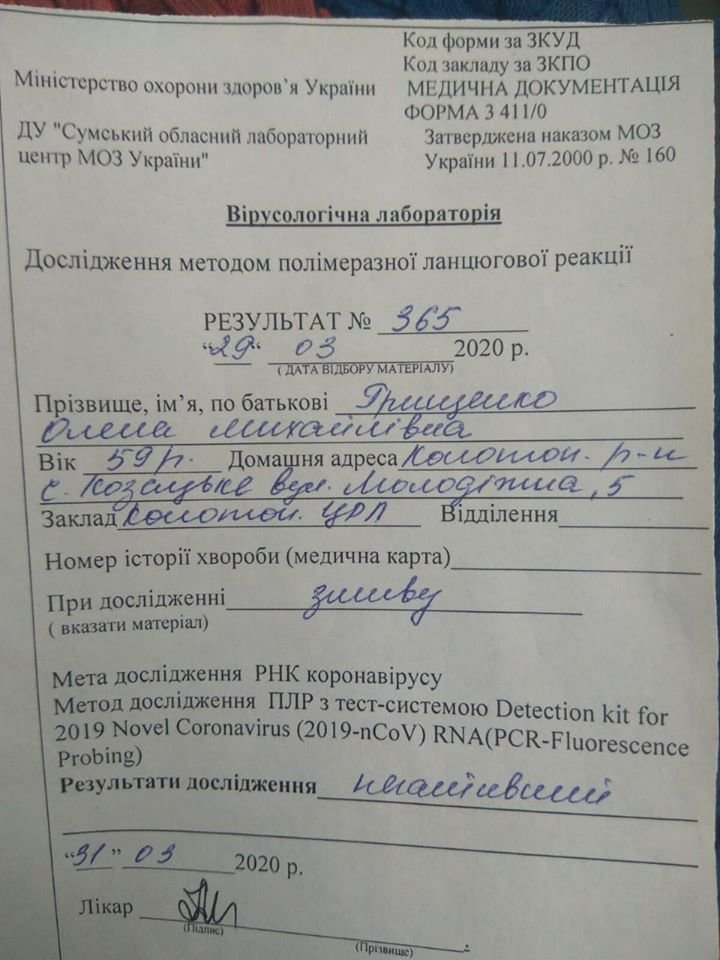 Код форми за ЗКУД
Код закладу за ЗКПО
Міністерство охорони здоров’я України МЕДИЧНА ДОКУМЕНТАЦІЯ
ФОРМА З 411/0
ДУ "Сумський обласний лабораторний Затверджена наказом МОЗ
центр МОЗ України" України 11.07.2000 р. № 160
Вірусологічна лабораторія
Дослідження методом полімеразної ланцюгової реакції
РЕЗУЛЬТАТ № 365
“29“ 03 2020 р.
( ДАТА ВІДБОРУ МАТЕРІАЛУ)
Прізвище, ім’я, по батькові Грищенко
Олена Михайлівна
Вік 59 р. Домашня адреса Конотоп. р-н
с. Козацьке вул. Молодіжна, 5
Заклад Конотоп. ЦРЛ Відділення
Номер історії хвороби (медична карта)
При дослідженні змиву
( вказати матеріал)
Мета дослідження РНК коронавірусу
Метод дослідження ПЛР з тест-системою Detection kit for
2019 Novel Coronavirus (2019-nCoV) RNA(PCR-Fluorescence
Probing)
Результати дослідження негативний
“31” 03 2020 р.
Лікар
(Підпис)
(Прізвище)